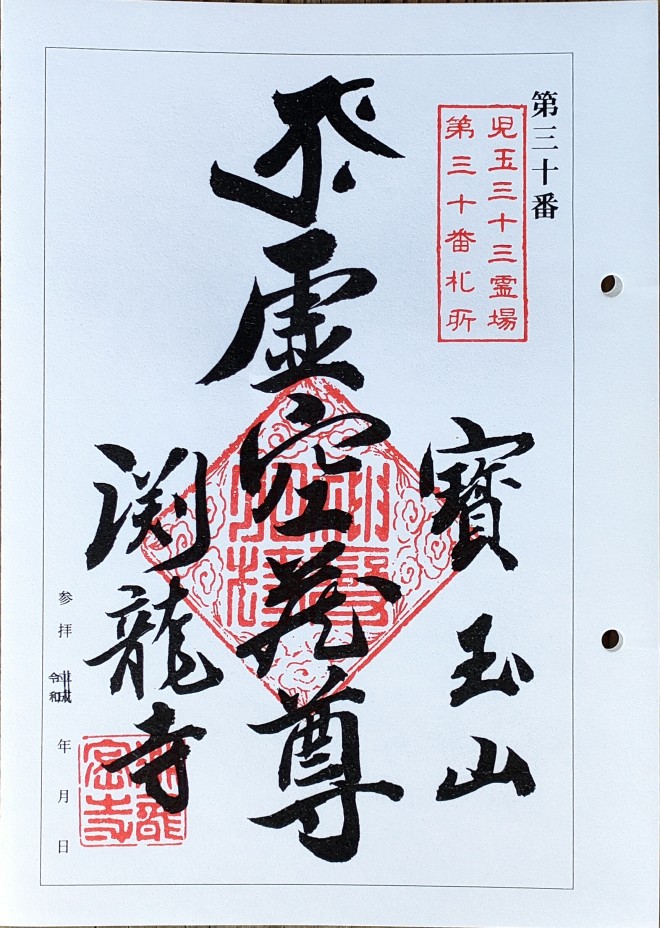 第三十番
児玉三十三霊場
第三十番札所
寳玉山
虚空蔵尊
渕龍寺
参拝
平成
令和
年
月
日